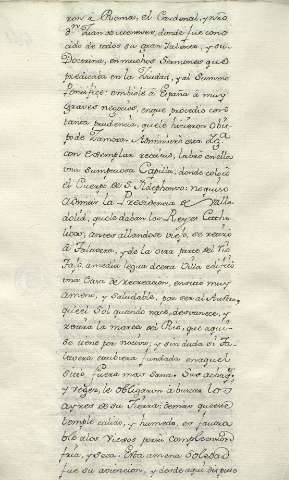 ron á Roma, el Cardenal, y nro
Dn Juan de                 , donde fue cono
cido de todos su gran Talento, y su
Doctrina, en muchos Sermones que
predicaba en la Ciudad, y al Summo
Pontifice: embióle á España á muy
graves negocios, en que procedio con
tanta prudencia, que le hicieron Obis
po de Zamora. Administró esta
con exemplar recurso, labró en ella
una sumptuosa Capilla, donde colocó
el Cuerpo de Sn Ildephonso: no quiso
admitir la Presidencia de Valla
dolid, que le daban los Reyes Catho
licos, antes allandose viejo, se retiró
á Talavera, y de la otra parte del Rio
Tajo, a media legua de esta Villa edificó
una Casa de recreacion, en sitio muy
ameno, y saludable, por estar al
que el Sol quando nace, desvanece, y
retira la marea del Rio, que aqui
se tiene por nocivo, y sin duda si Ta
lavera estubiera fundada en aquel
sitio, fuera mas sana. Sus achaq.
y vejez, le obligaron á buscar los
Ayres de su Tierra: demas que el
temple calido, y humedo, es favora
ble á los Viejos para complexion
fria, y seca. Esta amena soledad
fue su atencion, y desde aqui dispuso